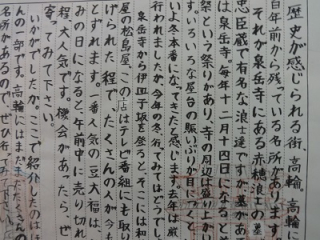 歴史が感じられる街、高輪。高輪に
百年前から残っている名所があります。
それが泉岳寺にある赤穂浪士の墓
忠臣蔵で有名な浪士達ですが、墓があ
は泉岳寺。毎年十二月十四日になると義
祭という祭りがあり、寺の周辺は盛り上が
す。いろいろな屋台の賑いぶりが目につくと
いよ冬本番になってきたと感じます。去年は厳
行われましたが、今年の冬、行ってみてはどうでし
泉岳寺から伊皿子坂を登ると、そこには和
屋の松島屋。この店はテレビ番組にも取
げられた程で、たくさんの人が今も
とずれます。一番人気の豆大福は、
みの日になると、午前中に売り切れ
程、大人気です。機会があったら、ぜ
寄ってみて下さい。
いかがでしたか。ここで紹介したのは
んの一部です。高輪にはまだまだたくさんの
名所があるので、ぜひ